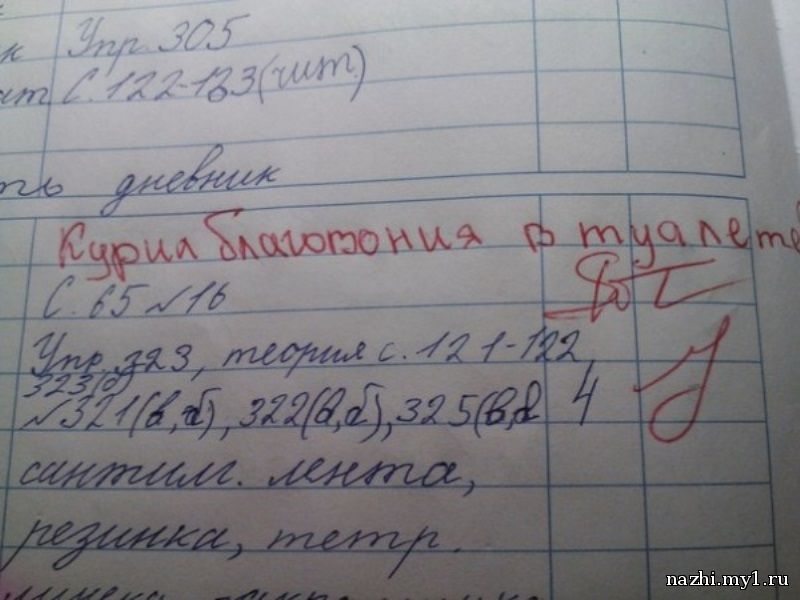 Упр. 305
С. 122-123 (чит.)
дневник
Курил благовония в туалете
С. 65 №16
Упр. 323, теория с. 121-122,
323(б)
№321(в,б), 322(в,б), 325(в,б 4
сантим. лента,
резинка, тетр.
nazhi.my1.ru